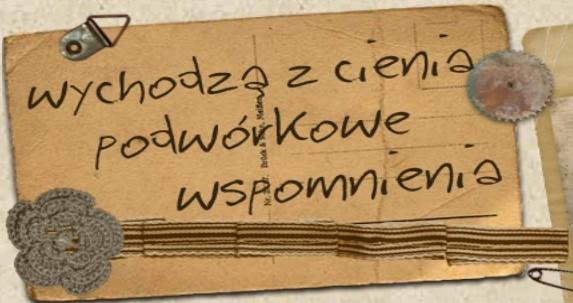 wychodzą z cienia
podwórkowe
wspomnienia